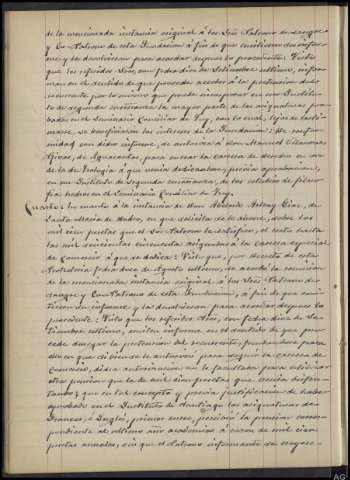 de la mencionada instancia original á los Sres Patrono de sangre
y Co-Patrono de esta Fundación á fin de que emitiesen su infor-
me y la devolviesen para acordar después lo procedente: Visto
que los referidos Sres, con fecha doce de Setiembre último, infor-
man en el sentido de que procede acceder á la pretensión del
recurrente por lo mismo que puede incorporar en un Instituto
de segunda enseñanza la mayor parte de las asignaturas pro-
badas en el Seminario Conciliar de Tuy, con lo cual, lejos de lasti-
marse, se benefician los intereses de la Fundación: De confor-
midad con dicho informe, se autoriza á don Manuel
de para cursar la carrera de Derecho en vez
de la de Teología á que venía dedicándose, previa aprobación,
en un Instituto de segunda enseñanza, de los estudios de filoso-
fía hechos en el Seminario Conciliar de Tuy.
Cuarto: En cuanto á la instancia de don de
Santa María de en que solicita se le abone, sobre las
mil cien pesetas que el Sr Patrono le satisface, el resto hasta
las mil seiscientas cincuenta asignadas á la carrera especial
de Comercio á que se dedica: Visto que, por decreto de esta
fecha doce de Agosto último, se acordó la remisión
de la mencionada instancia original á los Sres Patronos de
sangre y Co-Patrono de esta Fundación, á fin de que emi-
tiesen su informe y la devolviesen para acordar después lo
procedente: Visto que los referidos Sres, con fecha doce de Se-
tiembre último, emiten informe en el sentido de que pro-
cede denegar la pretensión del recurrente, fundándose para
ello en que al para seguir la carrera de
Comercio, dicha autorización no le facultaba para utilizar
otra pensión que la de mil cien pesetas que venía disfru-
tando; que en tal concepto y previa justificación de haber
aprobado en el Instituto de Santiago las asignaturas de
Francés, é Inglés, primer curso, percibió la pensión corres-
pondiente al último año académico á razón de mil cien
pesetas anuales, sin que el Patrono informante de sangre
AG